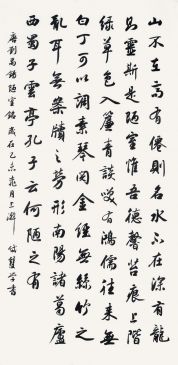 山不在高有僊則名水不在深有龍
則靈斯是陋室惟吾德馨苔痕上階
綠草色入簾青談笑有鴻儒往來無
白丁可以調素琴閱金經無絲竹之
亂耳無案牘之勞形南陽諸葛廬
西蜀子雲亭孔子云何陋之有
唐劉禹錫陋室銘歲在己月上澣學書